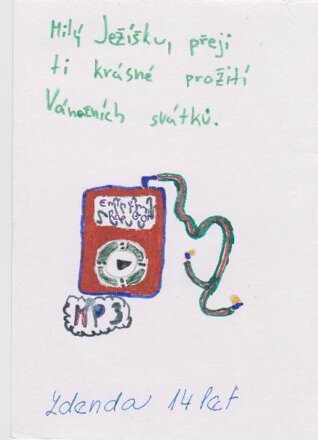 Milý Ježíšku, přeji
ti krásné prožití
Vánočních svátků.
MP3
Zdenda 14 let